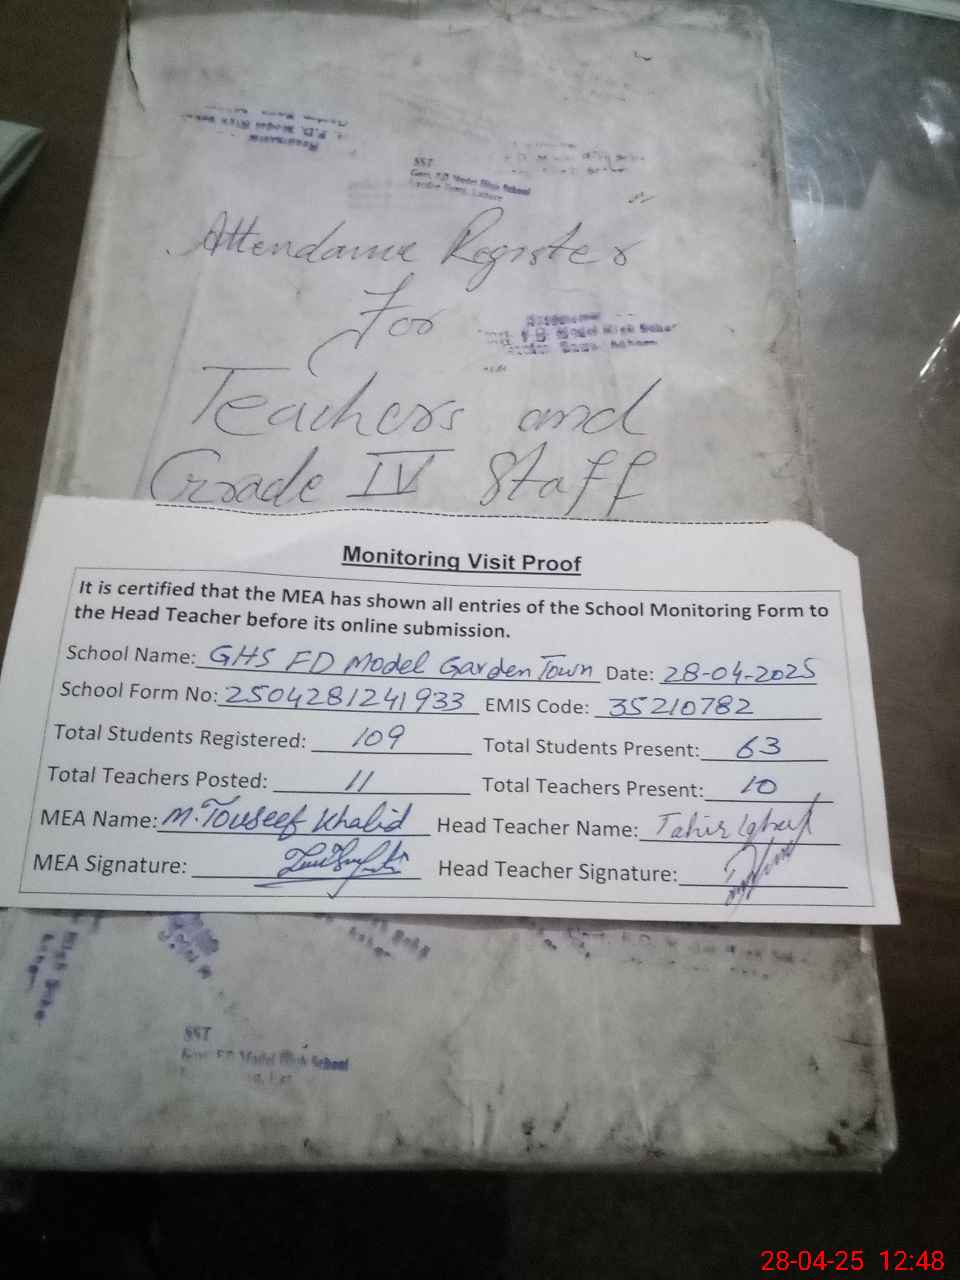 SST
Govt. F.D Model High School
Garden Town, Lahore
Attendance Register
For
Teachers and
Grade IV Staff
Monitoring Visit Proof
It is certified that the MEA has shown all entries of the School Monitoring Form to
the Head Teacher before its online submission.
School Name: GHS FD Model Garden Town Date: 28-04-2025
School Form No: 2504281241933 EMIS Code: 35210782
Total Students Registered: 109 Total Students Present: 63
Total Teachers Posted: 11 Total Teachers Present: 10
MEA Name: M. Touseef Khalid Head Teacher Name: Tahir Iqbal
MEA Signature: Head Teacher Signature:
SST
Govt. F.D Model High School
28-04-25 12:48